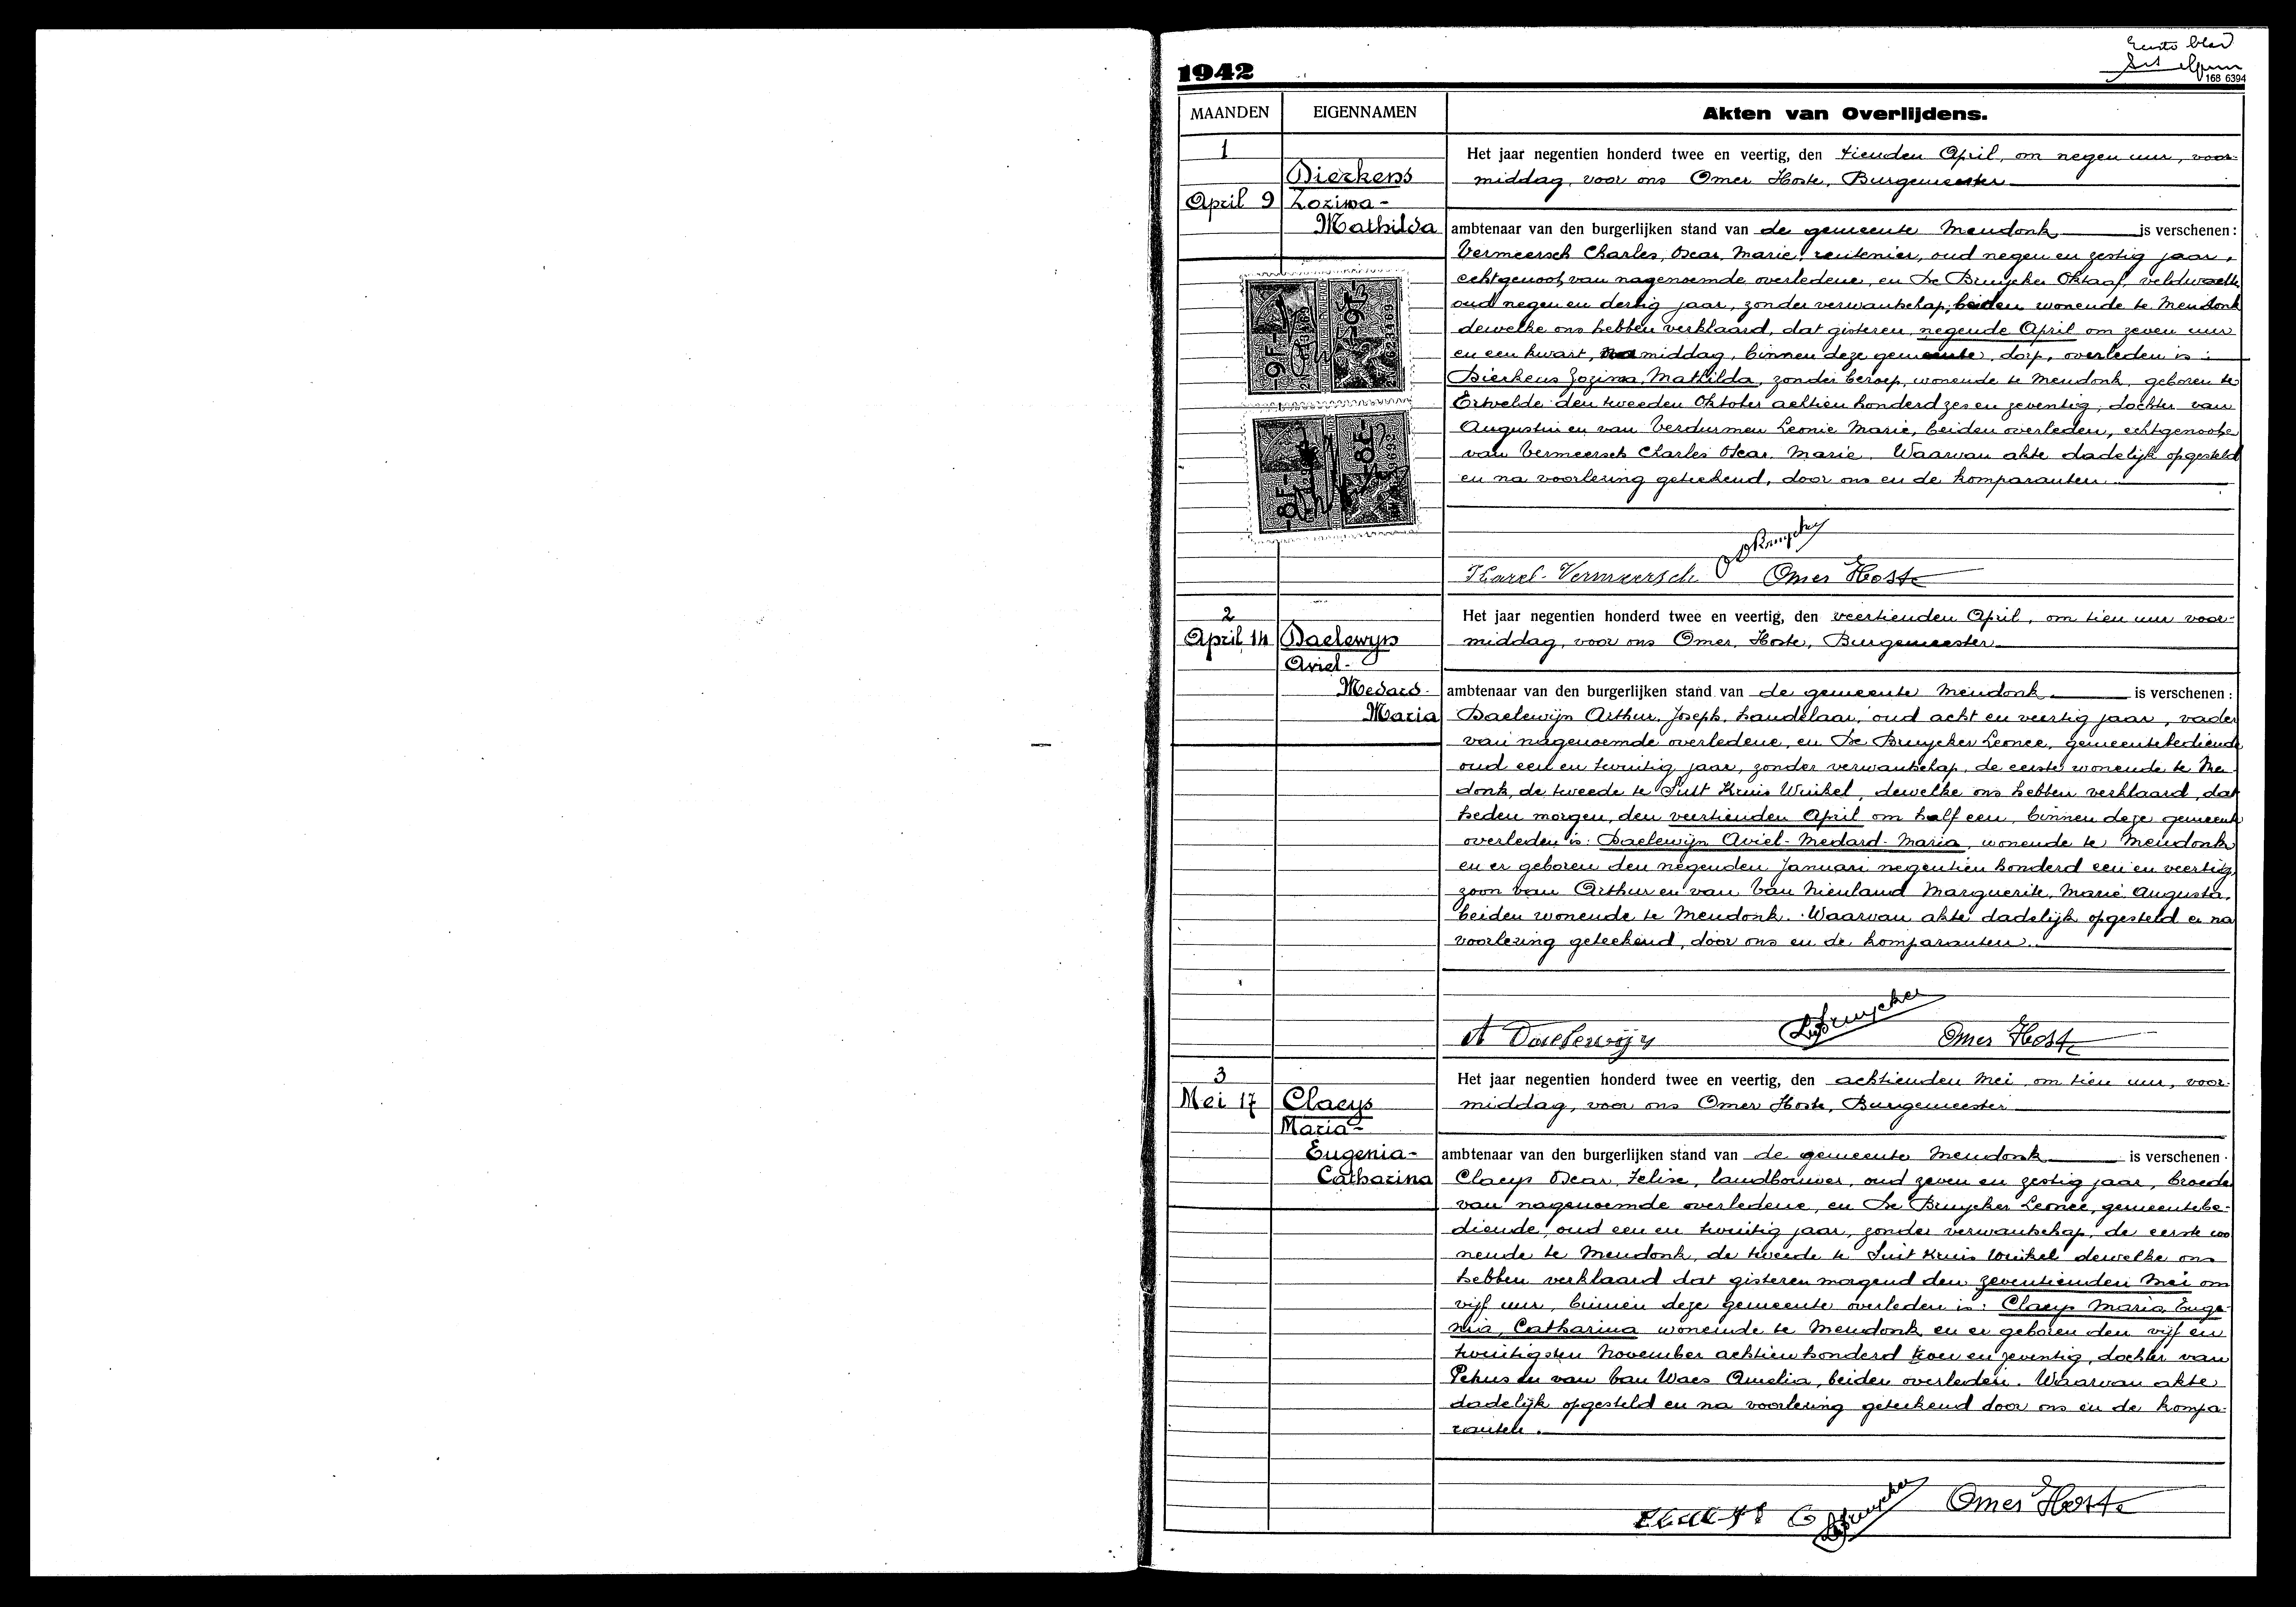 Eerste blad
1942
168 6394
MAANDEN EIGENNAMEN Akten van Overlijdens.
1
April 9
Dierkens
Zozima-
Mathilda
Het jaar negentien honderd twee en veertig, den tienden April, om negen uur, voor-
middag, voor ons Omer Hoste, Burgemeester
ambtenaar van den burgerlijken stand van de gemeente Mendonk is verschenen:
Vermeersch Charles, Oscar, Marie, rentenier, oud negen en zestig jaar,
echtgenoot van nagenoemde overledene, en De Bruycker Oktaaf, veldwachter
oud negen en dertig jaar, zonder verwantschap, beiden wonende te Mendonk
dewelke ons hebben verklaard, dat gisteren, negende April om zeven uur
en een kwart, namiddag, binnen deze gemeente, dorp, overleden is:
Dierkens Zozima, Mathilda, zonder beroep, wonende te Mendonk, geboren te
Ertvelde den tweeden Oktober achtien honderd zes en zeventig, dochter van
Augustin en van Verdurmen Leonie Marie, beiden overleden, echtgenoote
van Vermeersch Charles Oscar Marie. Waarvan akte dadelijk opgesteld
en na voorlezing geteekend, door ons en de komparanten.
9F 9F
8F 8F
O DBruycker
Karel Vermeersch Omer Hoste
2
April 14
Daelewyn
Aviel-
Medard-
Maria
Het jaar negentien honderd twee en veertig, den veertienden April, om tien uur voor-
middag, voor ons Omer Hoste, Burgemeester
ambtenaar van den burgerlijken stand van de gemeente Mendonk is verschenen:
Daelewijn Arthur, Joseph, handelaar, oud acht en veertig jaar, vader
van nagenoemde overledene, en De Bruycker Leonce, gemeentebediende
oud een en twintig jaar, zonder verwantschap, de eerste wonende te Men-
donk, de tweede te Sint Kruis Winkel, dewelke ons hebben verklaard, dat
heden morgen, den veertienden April om half een, binnen deze gemeente
overleden is: Daelewijn Aviel-Medard-Maria, wonende te Mendonk
en er geboren den negenden Januari negentien honderd een en veertig,
zoon van Arthur en van Van Nieuland Marguerite, Marie, Augusta,
beiden wonende te Mendonk. Waarvan akte dadelijk opgesteld en na
voorlezing geteekend, door ons en de komparanten.
A Daelewijn LDBruycker Omer Hoste
3
Mei 17
Claeys
Maria-
Eugenia-
Catharina
Het jaar negentien honderd twee en veertig, den achtienden Mei, om tien uur, voor-
middag, voor ons Omer Hoste, Burgemeester
ambtenaar van den burgerlijken stand van de gemeente Mendonk is verschenen:
Claeys Oscar, Felise, landbouwer, oud zeven en zestig jaar, broeder
van nagenoemde overledene, en De Bruycker Leonce, gemeentebe-
diende, oud een en twintig jaar, zonder verwantschap, de eerste wo
nende te Mendonk, de tweede te Sint Kruis Winkel dewelke ons
hebben verklaard dat gisteren morgend den zeventienden Mei om
vijf uur, binnen deze gemeente overleden is: Claeys Maria, Euge-
nia, Catharina wonende te Mendonk en er geboren den vijf en
twintigsten November achtien honderd twee en zeventig, dochter van
Petrus en van Van Waes Amelia, beiden overleden. Waarvan akte
dadelijk opgesteld en na voorlezing geteekend door ons en de kompa-
ranten.
Claeys O LDBruycker Omer Hoste